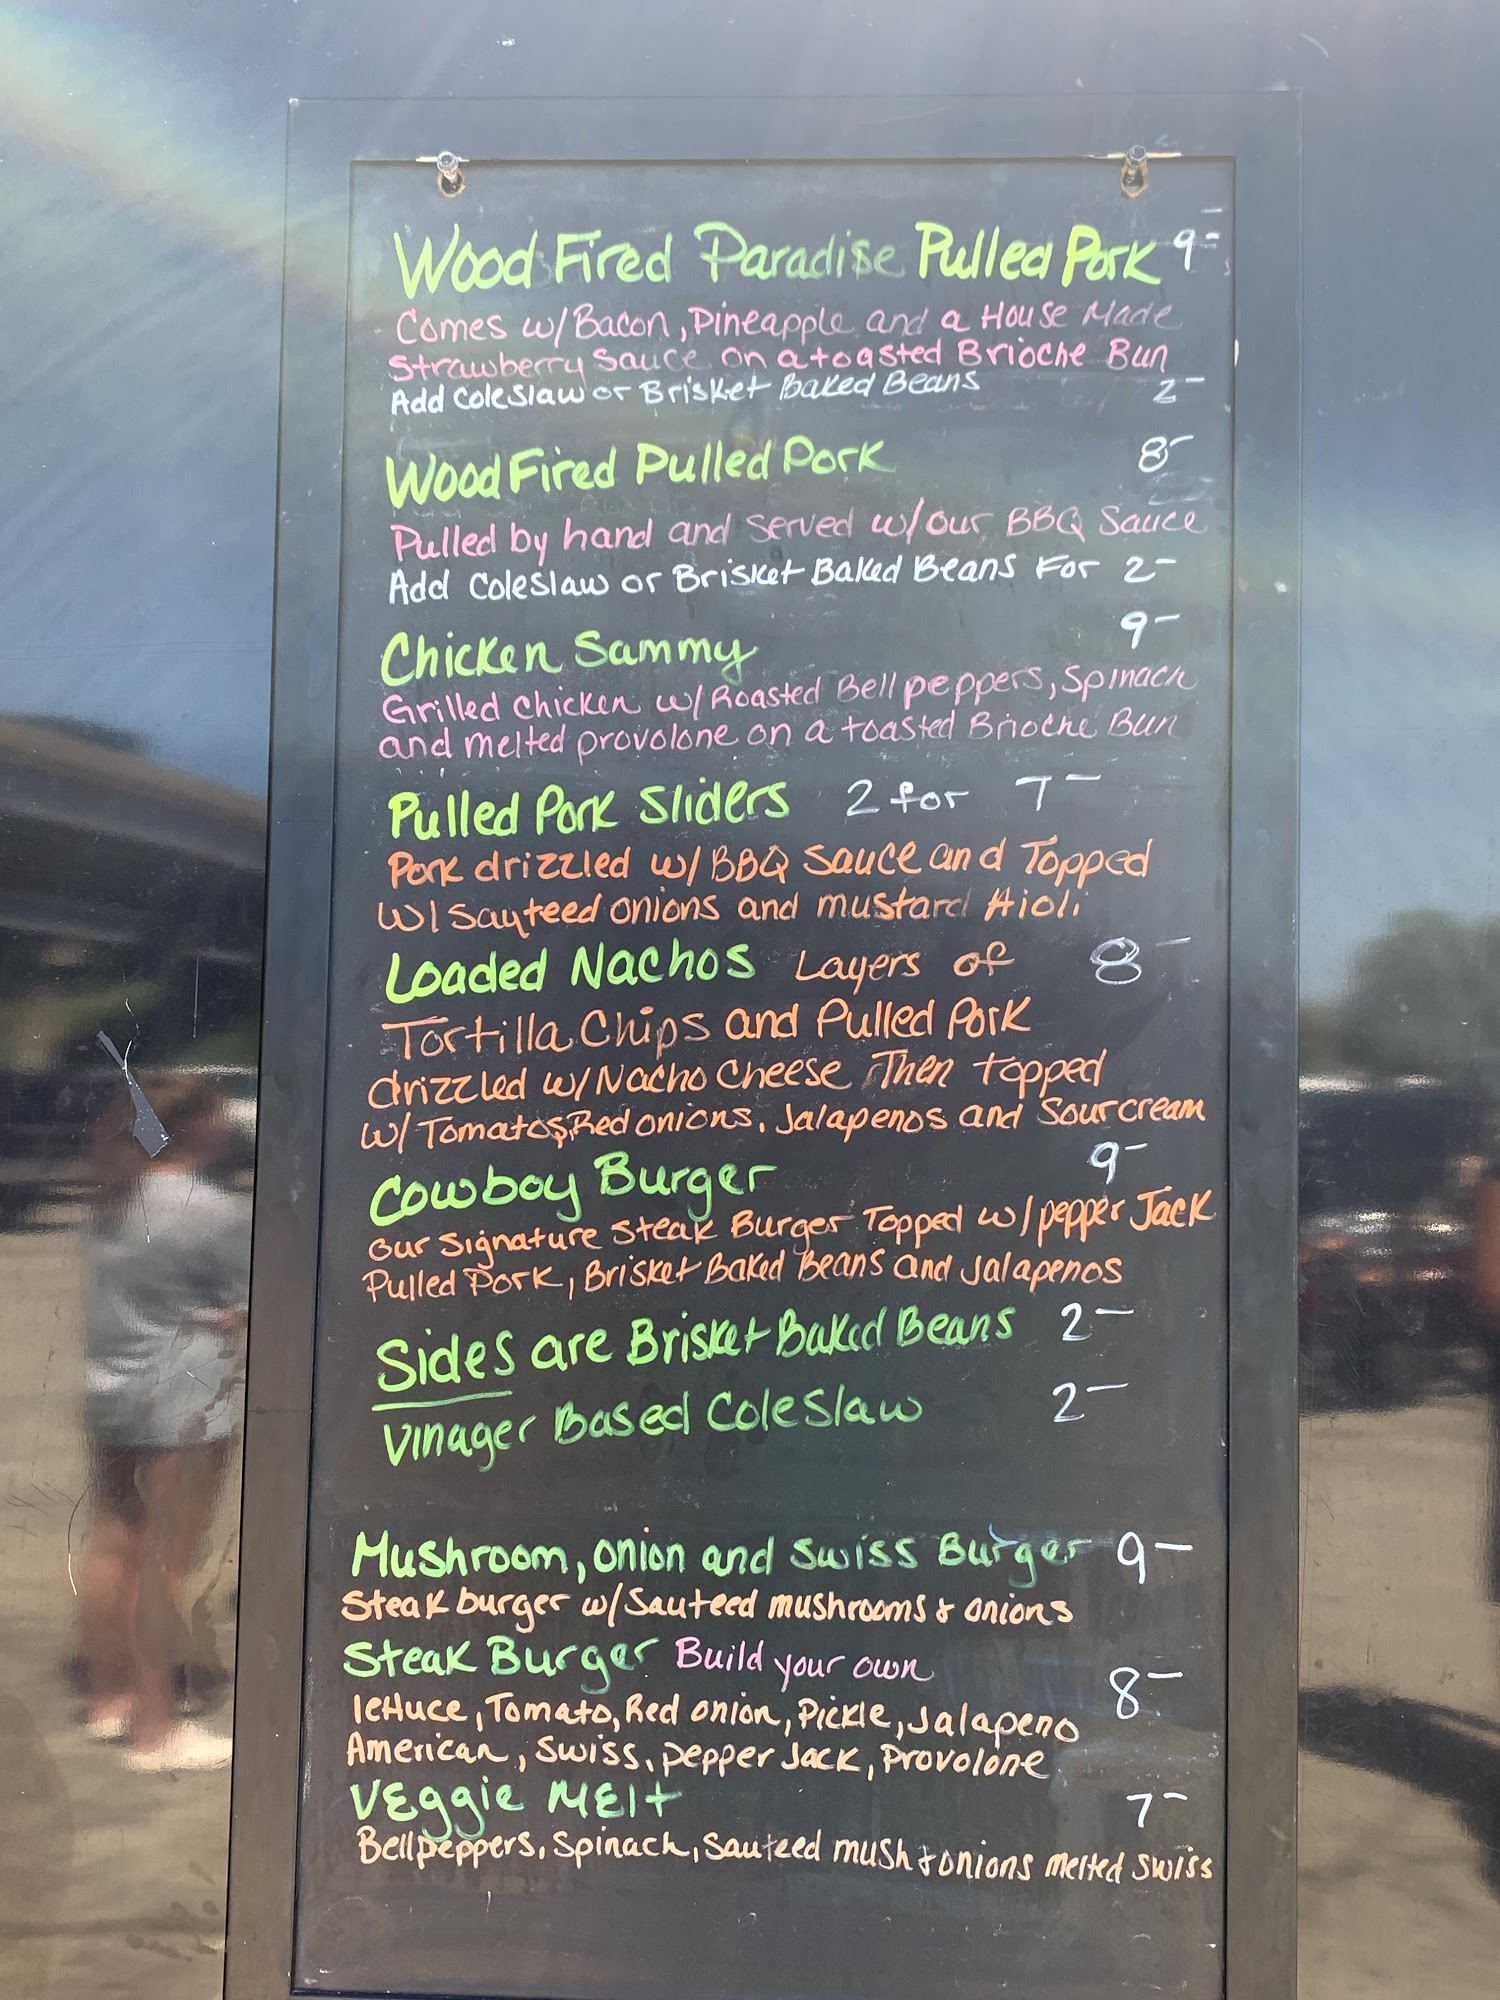 Wood Fired Paradise Pulled Pork 9-
Comes w/Bacon, Pineapple and a House Made
Strawberry Sauce on a toasted Brioche Bun
Add Coleslaw or Brisket Baked Beans 2-
Wood Fired Pulled Pork 8-
Pulled by hand and served w/our BBQ Sauce
Add Coleslaw or Brisket Baked Beans For 2-
Chicken Sammy 9-
Grilled Chicken w/Roasted Bell peppers, Spinach
and melted provolone on a toasted Brioche Bun
Pulled Pork Sliders 2 for 7-
Pork drizzled w/BBQ Sauce and Topped
w/Sauteed onions and mustard Aioli
Loaded Nachos Layers of 8-
Tortilla Chips and Pulled Pork
drizzled w/Nacho Cheese Then topped
w/Tomatos, Red onions, Jalapenos and Sour cream
Cowboy Burger 9-
our Signature Steak Burger Topped w/pepper Jack
Pulled Pork, Brisket Baked Beans and Jalapenos
Sides are Brisket Baked Beans 2-
Vinager Based Coleslaw 2-
Mushroom, onion and Swiss Burger 9-
Steak burger w/Sauteed mushrooms & onions
Steak Burger Build your own 8-
lettuce, Tomato, Red onion, Pickle, Jalapeno
American, Swiss, pepper Jack, Provolone
Veggie Melt 7-
Bell peppers, Spinach, Sauteed mush & onions melted swiss